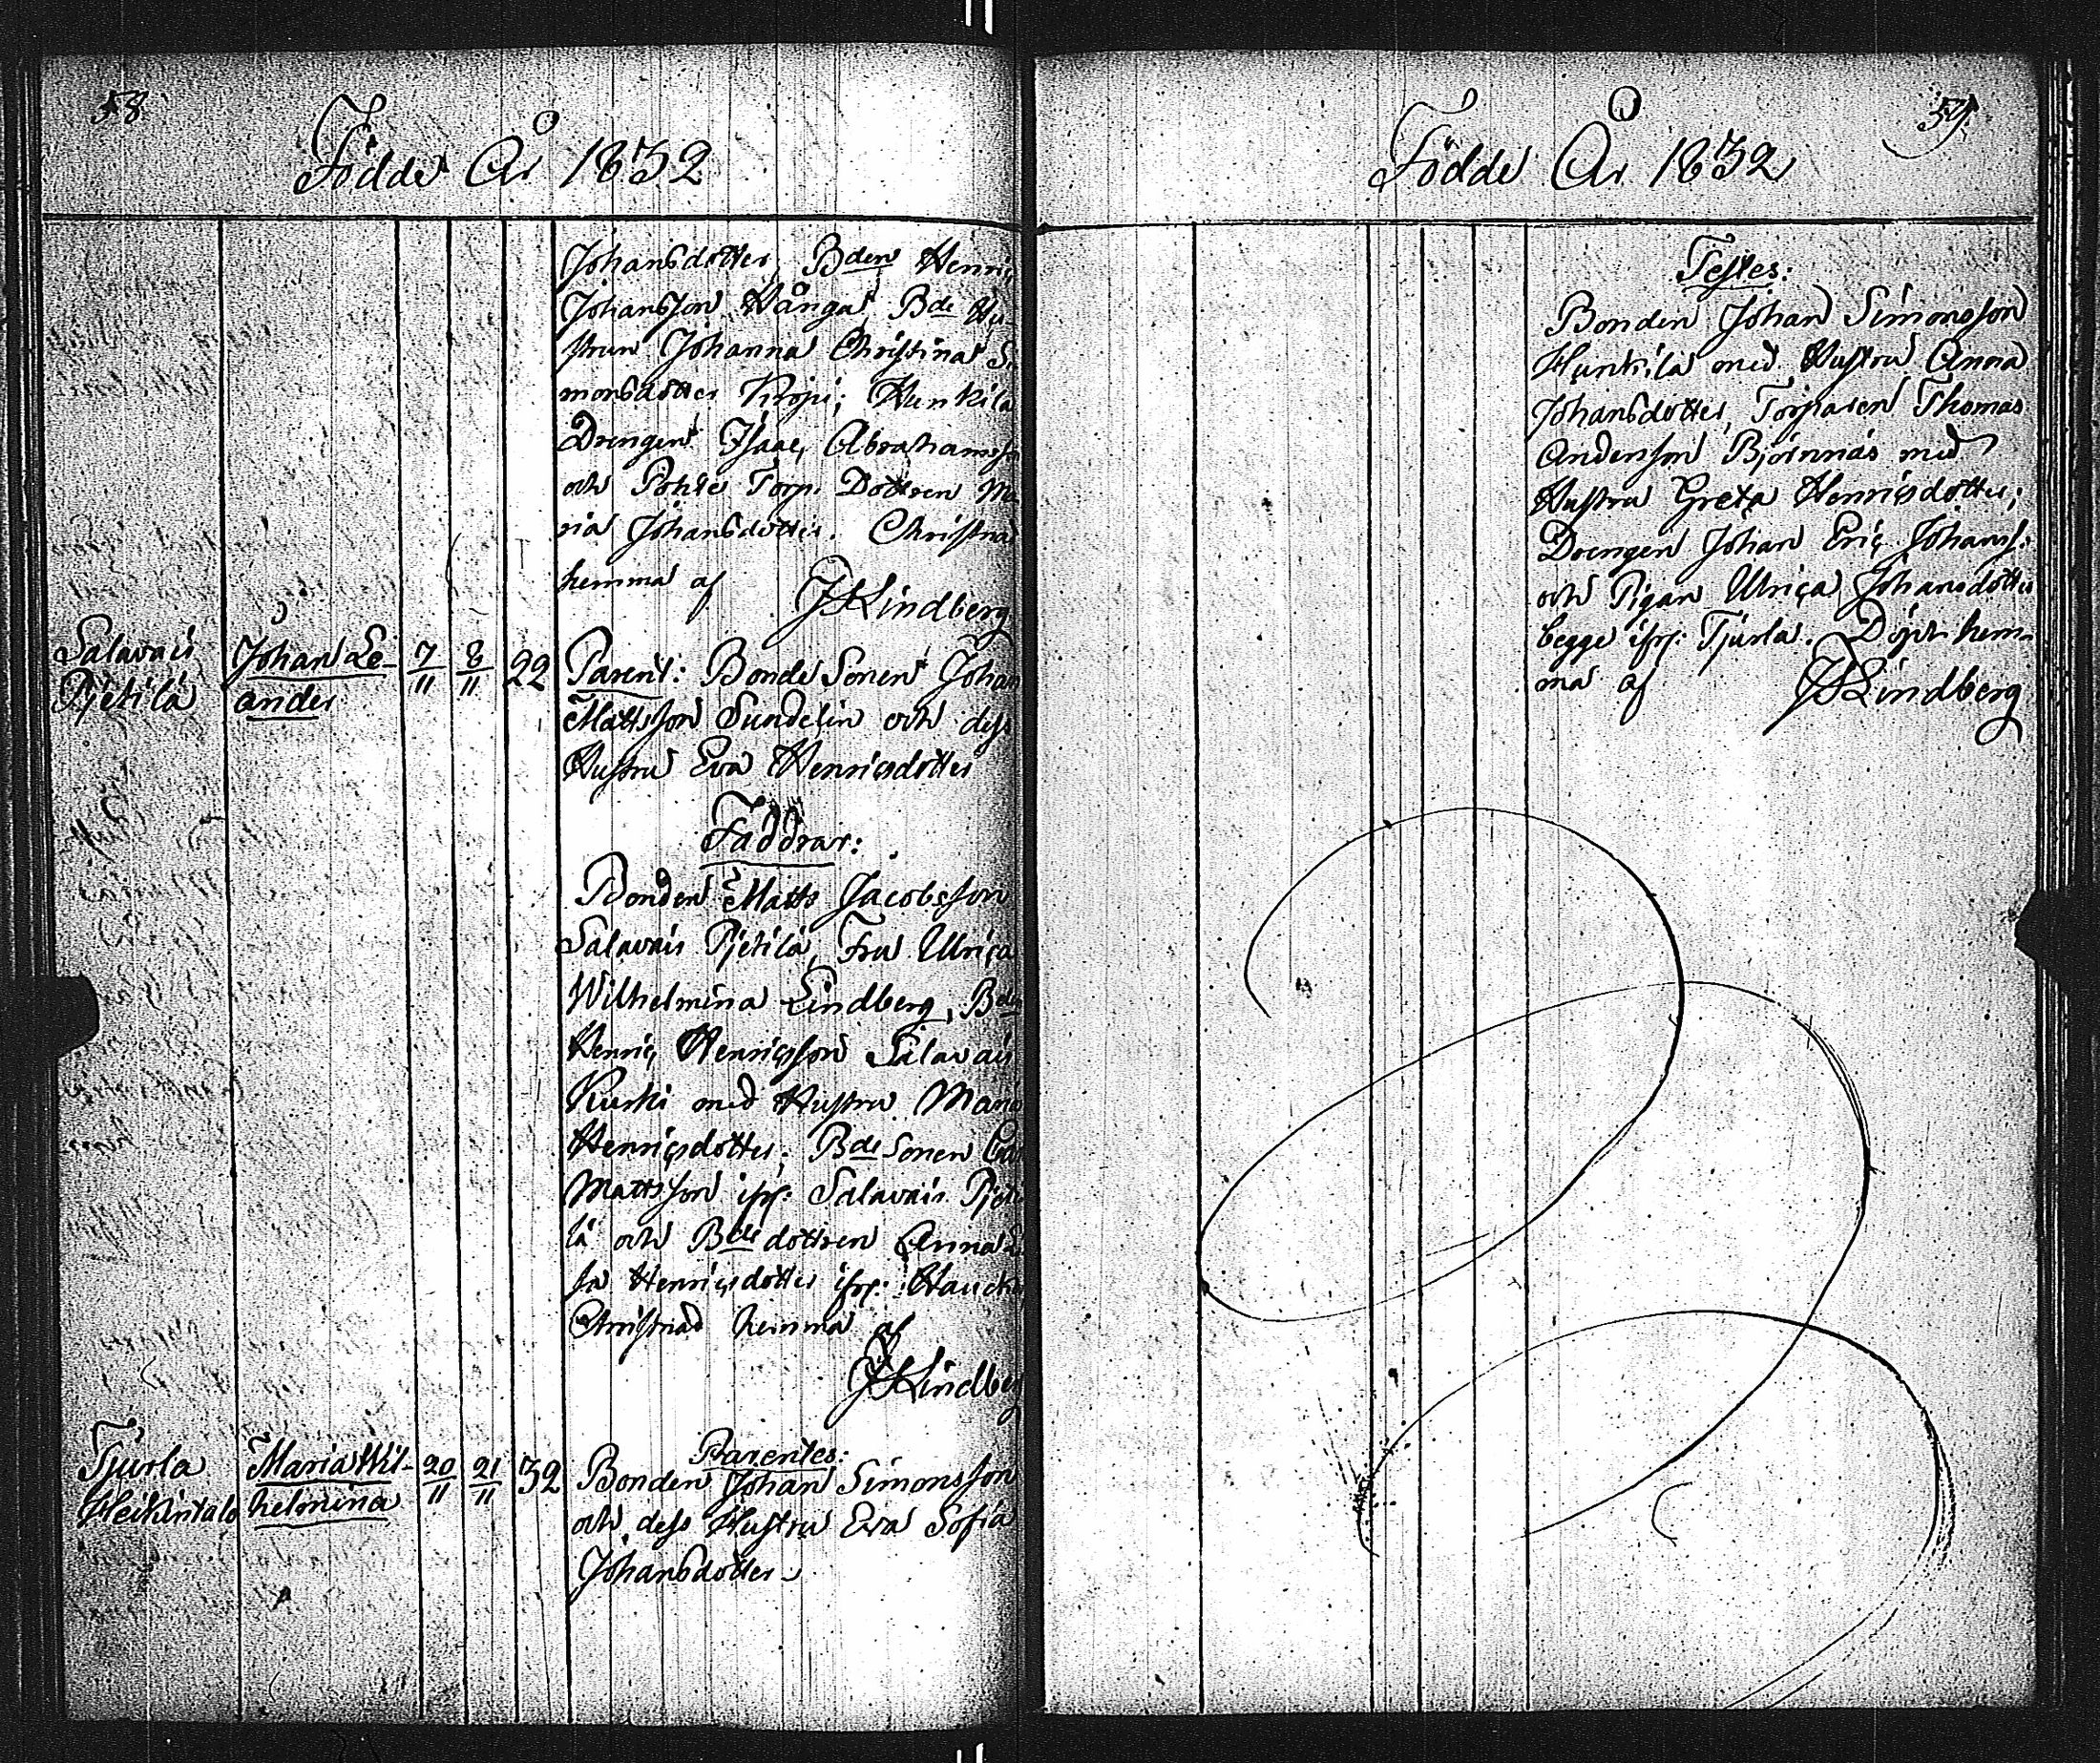 58
Födde År 1832
Johansdotter, Bden Henric
Johansson Hånga, Bde Hu-
strun Johanna Christina Si
monsdotter Kropi; Hunkila
Drengen Isaac Abrahamsson
och Torp. Dottren Ma
ria Johansdotter. Christnad
hemma af JSLindberg
Salavais Johan Le- 7/11 8/11 22 Parent: Bonde Sonen Johan
Pjetilä ander Mattsson Sundelin och dess
Hustru Eva Henricsdotter
Faddrar:
Bonden Matts Jacobsson
Salavais Pjetilä, Fru Ulrica
Wilhelmina Lindberg, Bden
Henric Henricsson Salavais
Kurki med Hustru Maria
Henricsdotter; Bde Sonen
Mattsson ifr: Salavais Pjeti
lä och Bde dottren Anna
sa Henricsdotter ifr:
Christnad hemma af
JSLindberg
Tjurla Maria Wil- 20/11 21/11 32 Parentes:
Heikintalo helmina Bonden Johan Simonsson
och dess Hustru Eva Sofia
Johansdotter
59
Födde År 1832
Testes:
Bonden Johan Simonsson
Hunkila med Hustru Anna
Johansdotter, Torparen Thomas
Andersson Björnnäs med
Hustru Greta Henricsdotter;
Drengen Johan Eric Johanss:
och Pigan Ulrica Johansdotter
begge ifr: Tjurla. Döpt hem-
ma af JSLindberg